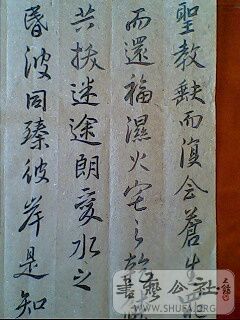 聖教缺而復全蒼生罪
而還福濕火宅之乾燄
共拔迷途朗愛水之
昏波同臻彼岸是知
書藝公社